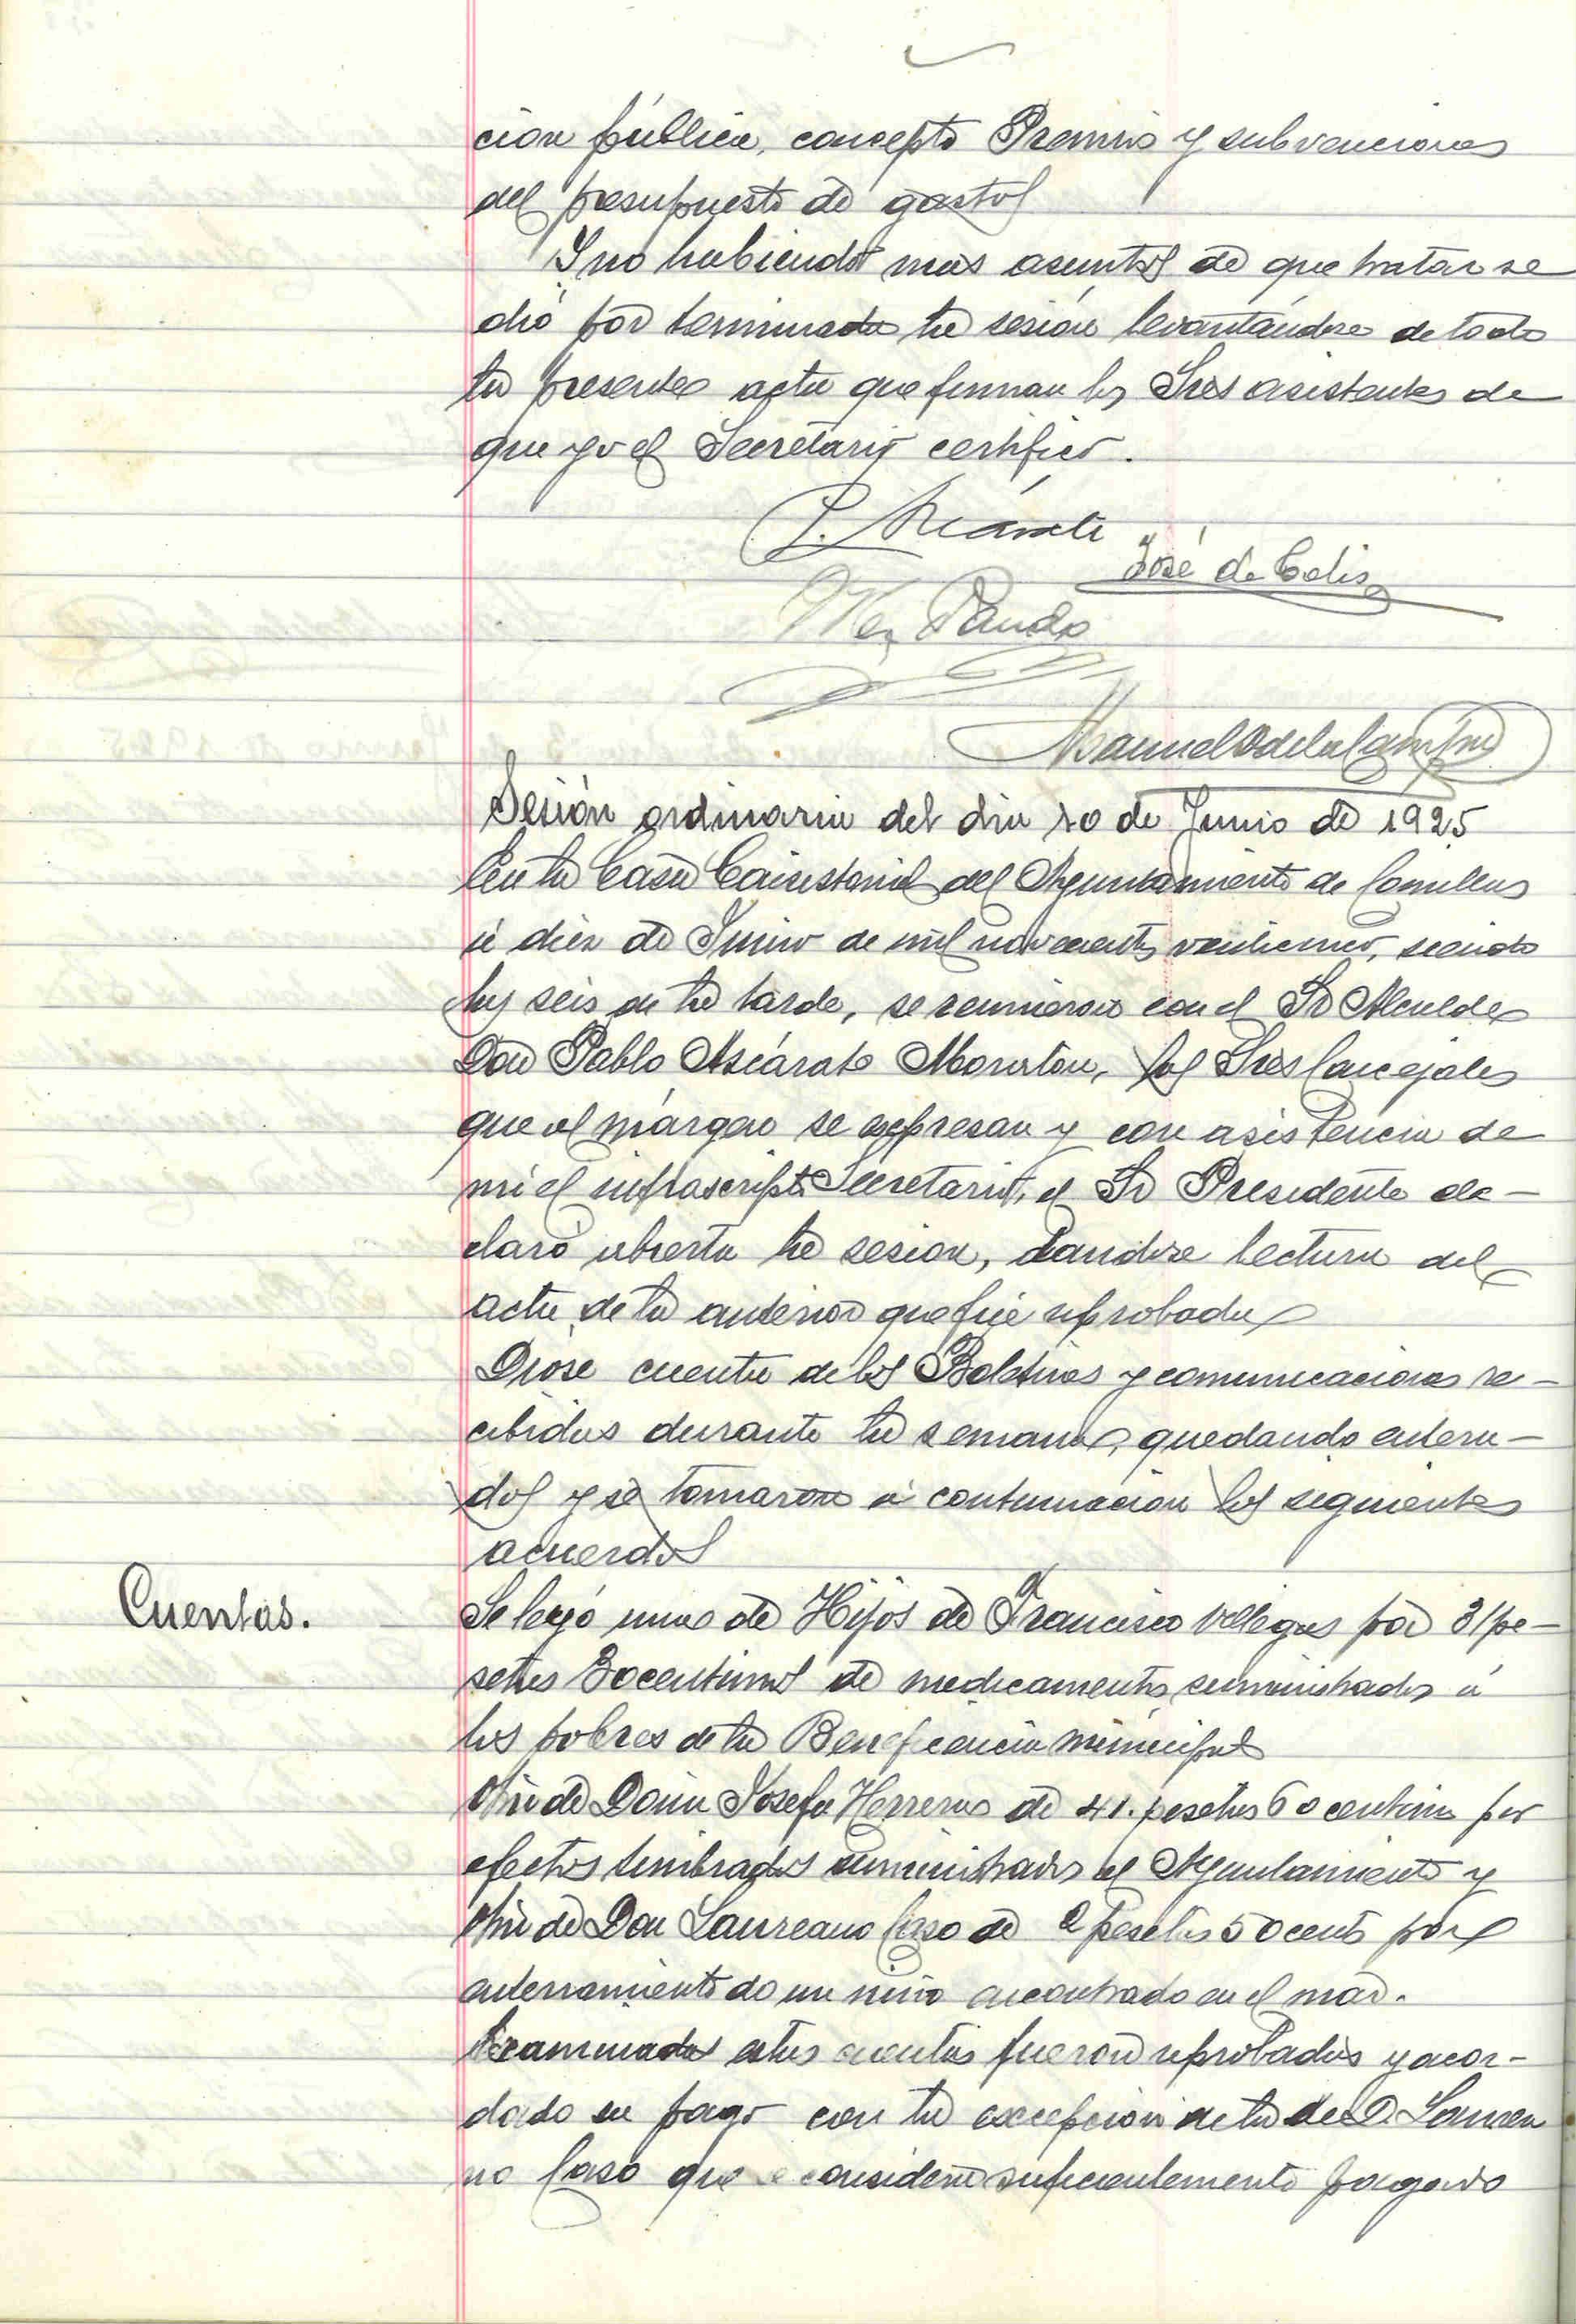 cion pública, concepto Premios y subvenciones
del presupuesto de gastos
Y no habiendo mas asuntos de que tratar se
dió por terminada la sesión levantándose de todo
la presente acta que firman los Sres asistentes de
que yo el Secretario certifico.
P. Azcárate
José de Celis
Pando
Manuel
Sesión ordinaria del dia 10 de Junio de 1925
En la Casa Consistorial del Ayuntamiento de Comillas
á diez de Junio de mil novecientos veinticinco, siendo
las seis de la tarde, se reunieron con el Sr Alcalde
Don Pablo Azcárate Moratón, los Sres Concejales
que al márgen se expresan y con asistencia de
mi el infrascripto Secretario, el Sr Presidente de-
claró abierta la sesion, dandose lectura del
acta de la anterior que fué aprobada
Diose cuenta de los Boletines y comunicaciones re-
cibidas durante la semana, quedando entera-
dos y se tomaron á continuacion los siguientes
acuerdos
Cuentas.
Se leyó una de Hijos de Francisco Villegas por 31 pe-
setas 30 centimos de medicamentos suministrados á
los pobres de la Beneficencia municipal
Otra de Doña Josefa Herreras de 41. pesetas 60 centims por
efectos timbrados suministrados al Ayuntamiento y
Otra de Don Laureano Caso de 2 pesetas 50 cents por
enterramiento de un niño encontrado en el mar.
Examinadas estas cuentas fueron aprobadas y acor-
dado su pago con la excepcion de la de D. Laurea
no Caso que se considera suficientemente pagado